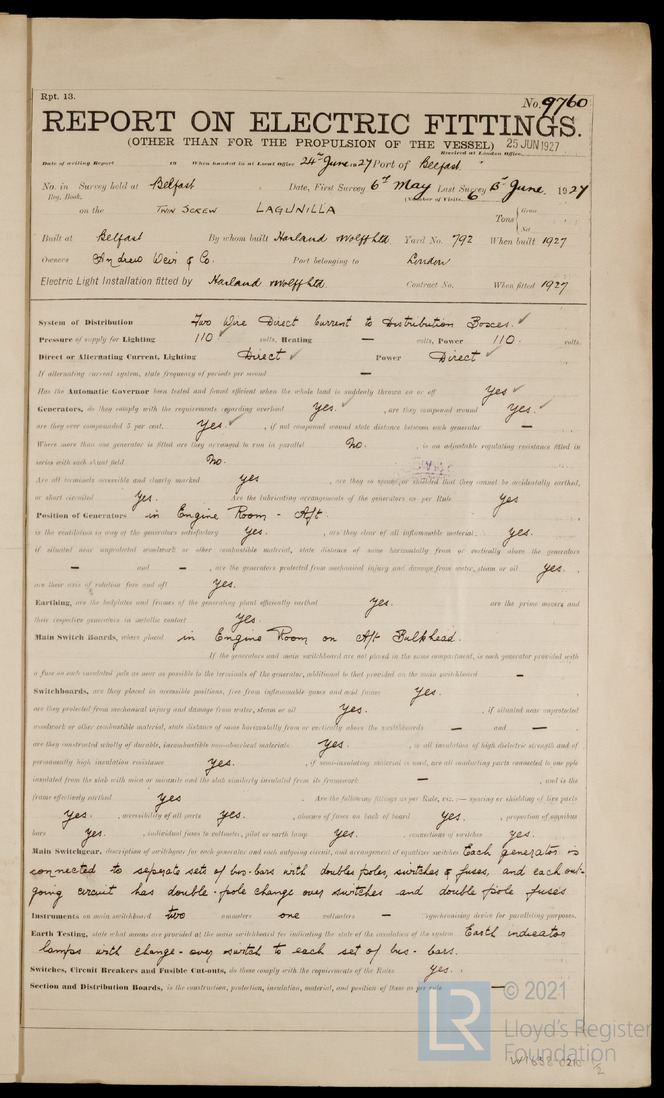 Rpt. 13.
No. 9760
REPORT ON ELECTRIC FITTINGS.
(OTHER THAN FOR THE PROPULSION OF THE VESSEL) 25 JUN 1927
Received at London Office
Date of writing Report 19 When handed in at Local Office 24th June 1927 Port of Belfast
No. in Survey held at Belfast Date, First Survey 6th May Last Survey June 1927
Reg. Book. (Number of Visits 6
on the Twin Screw LAGUNILLA Tons { Gross
Net
Built at Belfast By whom built Harland Wolff Ltd Yard No. 792 When built 1927
Owners Andrew Weir & Co. Port belonging to London
Electric Light Installation fitted by Harland Wolff Ltd. Contract No. When fitted 1927
System of Distribution Two Wire Direct Current to Distribution Boxes. ✓
Pressure of supply for Lighting 110 ✓ volts, Heating — volts, Power 110. volts.
Direct or Alternating Current, Lighting Direct ✓ Power Direct ✓
If alternating current system, state frequency of periods per second —
Has the Automatic Governor been tested and found efficient when the whole load is suddenly thrown on or off Yes ✓
Generators, do they comply with the requirements regarding overload yes. ✓ , are they compound wound Yes. ✓
are they over compounded 5 per cent. Yes. ✓ , if not compound wound state distance between each generator —
Where more than one generator is fitted are they arranged to run in parallel No. , is an adjustable regulating resistance fitted in
series with each shunt field No.
Are all terminals accessible and clearly marked yes , are they so spaced or shielded that they cannot be accidentally earthed,
or short circuited Yes. Are the lubricating arrangements of the generators as per Rule yes
Position of Generators in Engine Room - Aft.
is the ventilation in way of the generators satisfactory Yes. , are they clear of all inflammable material yes.
if situated near unprotected woodwork or other combustible material, state distance of same horizontally from or vertically above the generators
— and — , are the generators protected from mechanical injury and damage from water, steam or oil yes. ,
are their axis of rotation fore and aft yes.
Earthing, are the bedplates and frames of the generating plant efficiently earthed yes. are the prime movers and
their respective generators in metallic contact yes.
Main Switch Boards, where placed in Engine Room on Aft Bulkhead.
If the generators and main switchboard are not placed in the same compartment, is each generator provided with
a fuse on each insulated pole as near as possible to the terminals of the generator, additional to that provided on the main switchboard —
Switchboards, are they placed in accessible positions, free from inflammable gases and acid fumes yes.
are they protected from mechanical injury and damage from water, steam or oil yes. , if situated near unprotected
woodwork or other combustible material, state distance of same horizontally from or vertically above the switchboards — and —
are they constructed wholly of durable, incombustible non-absorbent materials yes. , is all insulation of high dielectric strength and of
permanently high insulation resistance yes. , if semi-insulating material is used, are all conducting parts connected to one pole
insulated from the slab with mica or micanite and the slab similarly insulated from its framework — , and is the
frame effectively earthed yes . Are the following fittings as per Rule, viz.:— spacing or shielding of live parts
yes. , accessibility of all parts yes. , absence of fuses on back of board yes. , proportion of omnibus
bars yes. , individual fuses to voltmeter, pilot or earth lamp yes. , connections of switches yes.
Main Switchgear, description of switchgear for each generator and each outgoing circuit, and arrangement of equalizer switches Each generator is
connected to seperate sets of bus-bars with doubles poles, switches & fuses, and each out-
going circuit has double-pole change over switches and double pole fuses
Instruments on main switchboard two ammeters one voltmeters — synchronising device for paralleling purposes.
Earth Testing, state what means are provided at the main switchboard for indicating the state of the insulation of the system Earth indicator
lamps with change-over switch to each set of bus-bars.
Switches, Circuit Breakers and Fusible Cut-outs, do these comply with the requirements of the Rules yes.
Section and Distribution Boards, is the construction, protection, insulation, material, and position of these as per rule —
LR © 2021
Lloyd's Register
Foundation
W1838-0210 1/2